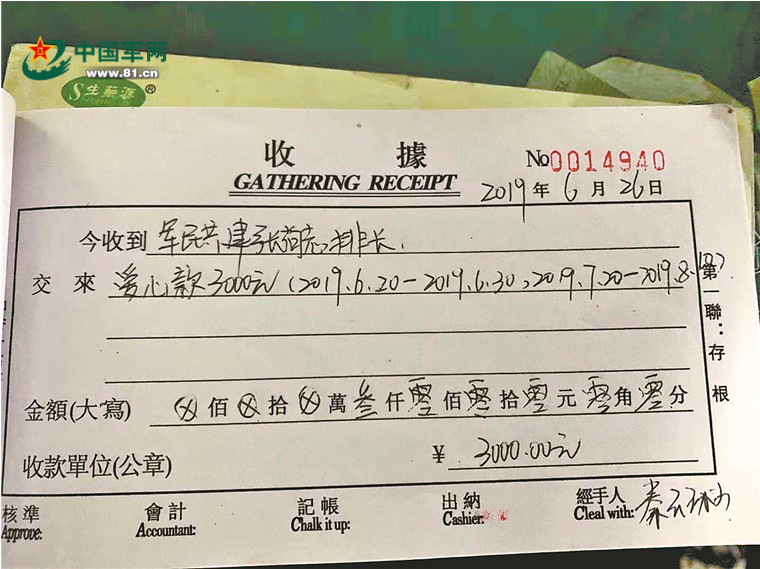 中国军网
www.81.cn
S生蘇源®
收 據
GATHERING RECEIPT
No 0014940
2019年6月26日
今收到 军民共建张 排长.
交來 爱心款3000元(2019.6.20-2019.6.30、2019.7.20-2019.8.10)
第一聯:存根
金額(大寫) ⊗佰⊗拾⊗萬叁仟零佰零拾零元零角零分
收款單位(公章) ¥ 3000.00元
核準 會計 記帳 出納 經手人
Approve: Accountant: Chalk it up: Cashier: Cleal with: